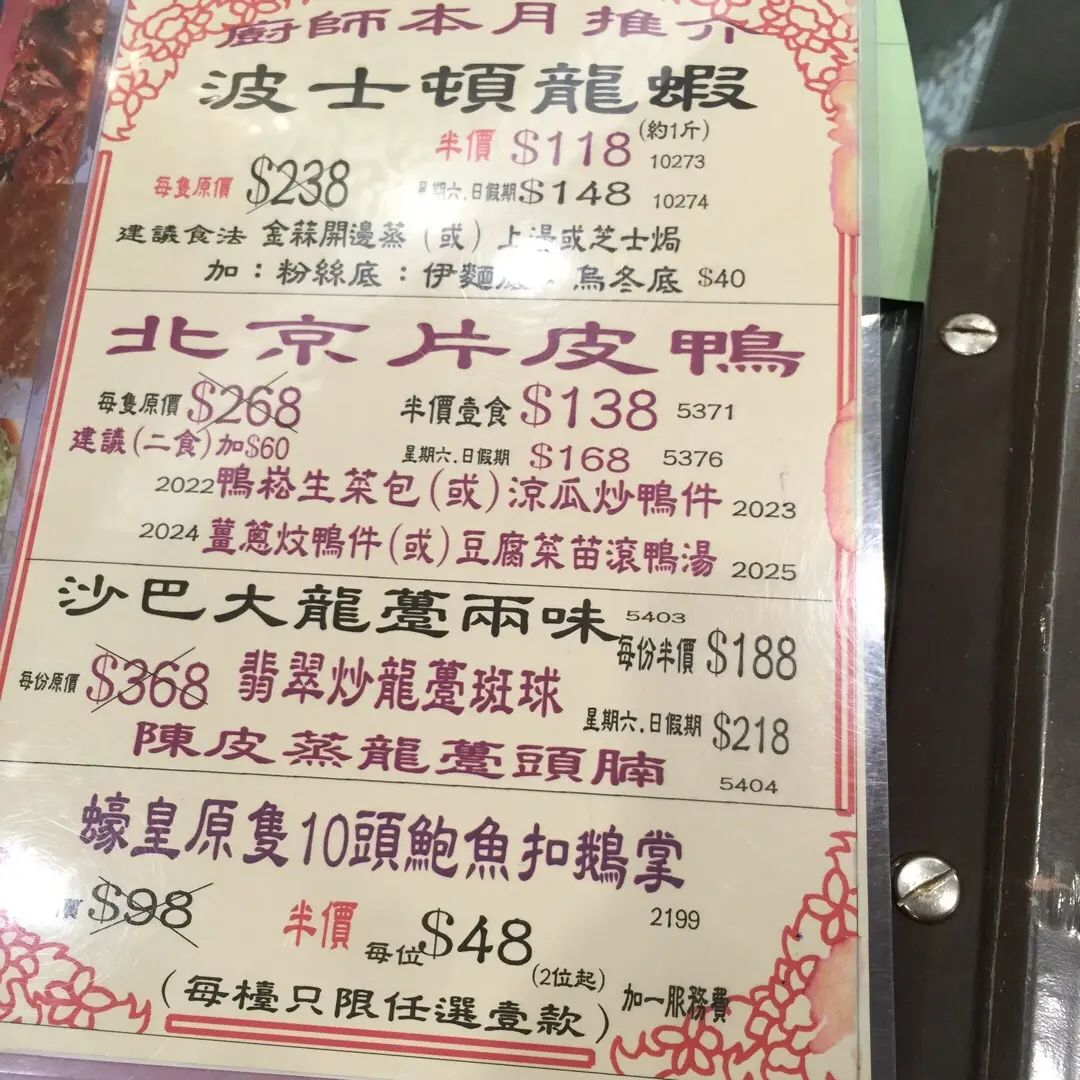 廚師本月推介
波士頓龍蝦
半價 $118 (約1斤) 10273
每隻原價 $238 星期六.日假期 $148 10274
建議食法 金蒜開邊蒸 (或) 上湯或芝士焗
加：粉絲底：伊麵底：烏冬底 $40
北京片皮鴨
每隻原價 $268 半價壹食 $138 5371
建議(二食)加$60 星期六.日假期 $168 5376
2022 鴨崧生菜包(或)涼瓜炒鴨件 2023
2024 薑蔥炆鴨件(或)豆腐菜苗滾鴨湯 2025
沙巴大龍躉兩味 5403
每份半價 $188
每份原價 $368 翡翠炒龍躉斑球
星期六.日假期 $218
陳皮蒸龍躉頭腩 5404
蠔皇原隻10頭鮑魚扣鵝掌
2199
價 $98 半價 每位 $48 (2位起)
(每檯只限任選壹款) 加一服務費